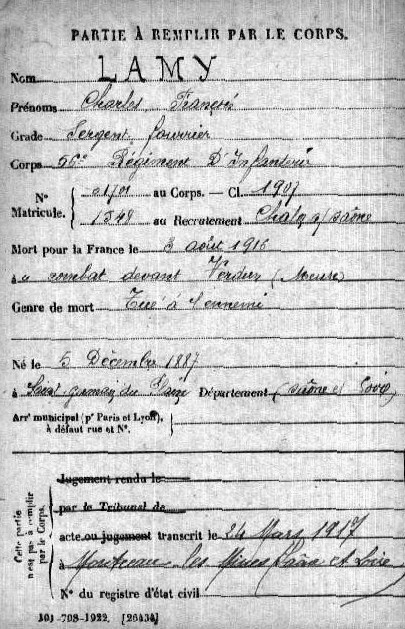 PARTIE À REMPLIR PAR LE CORPS.
Nom LAMY
Prénoms Charles François
Grade Sergent fourrier
Corps 56e Régiment D'Infanterie
N° Matricule. 01701 au Corps. — Cl. 1907
1548 au Recrutement Chalon s/ Saône
Mort pour la France le 3 août 1916
à combat devant Verdun (Meuse)
Genre de mort Tué à l'ennemi
Né le 5 Décembre 1887
à Saint germain du Département (Saône et Loire)
Arrt municipal (pr Paris et Lyon), à défaut rue et N°.
Cette partie n'est pas à remplir par le Corps.
Jugement rendu le
par le Tribunal de
acte ou jugement transcrit le 24 Mars 1917
à Montceau les Mines Saône et Loire
N° du registre d'état civil
101-708-1922. [26434]